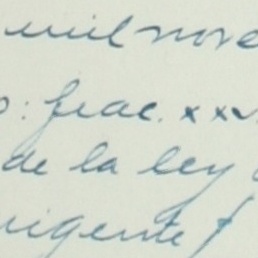 mil nove
: frac. xxv
de la ley
vigente